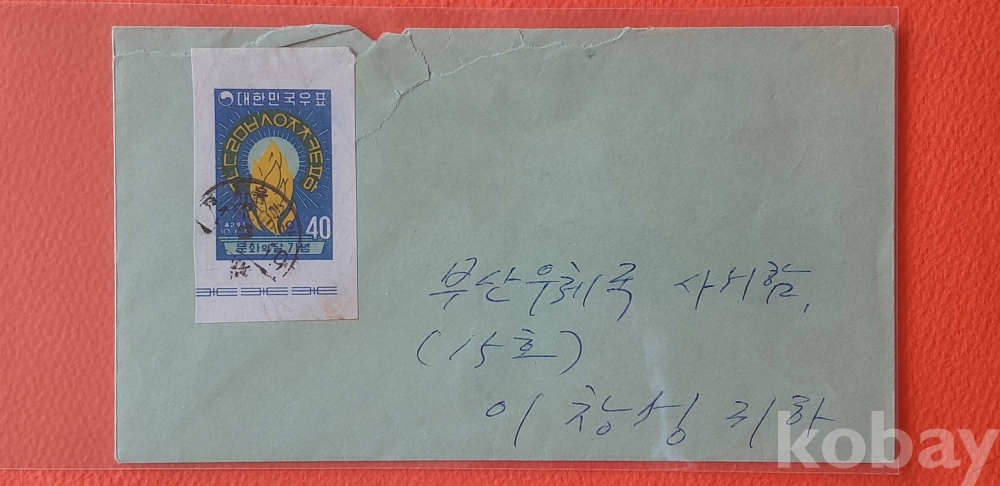 대한민국우표
ㄱㄴㄷㄹㅁㅂㅅㅇㅈㅊㅋㅌㅍㅎ
40
문화의달기념
부산우체국 사서함,
(15호)
이 창성 귀하
kobay